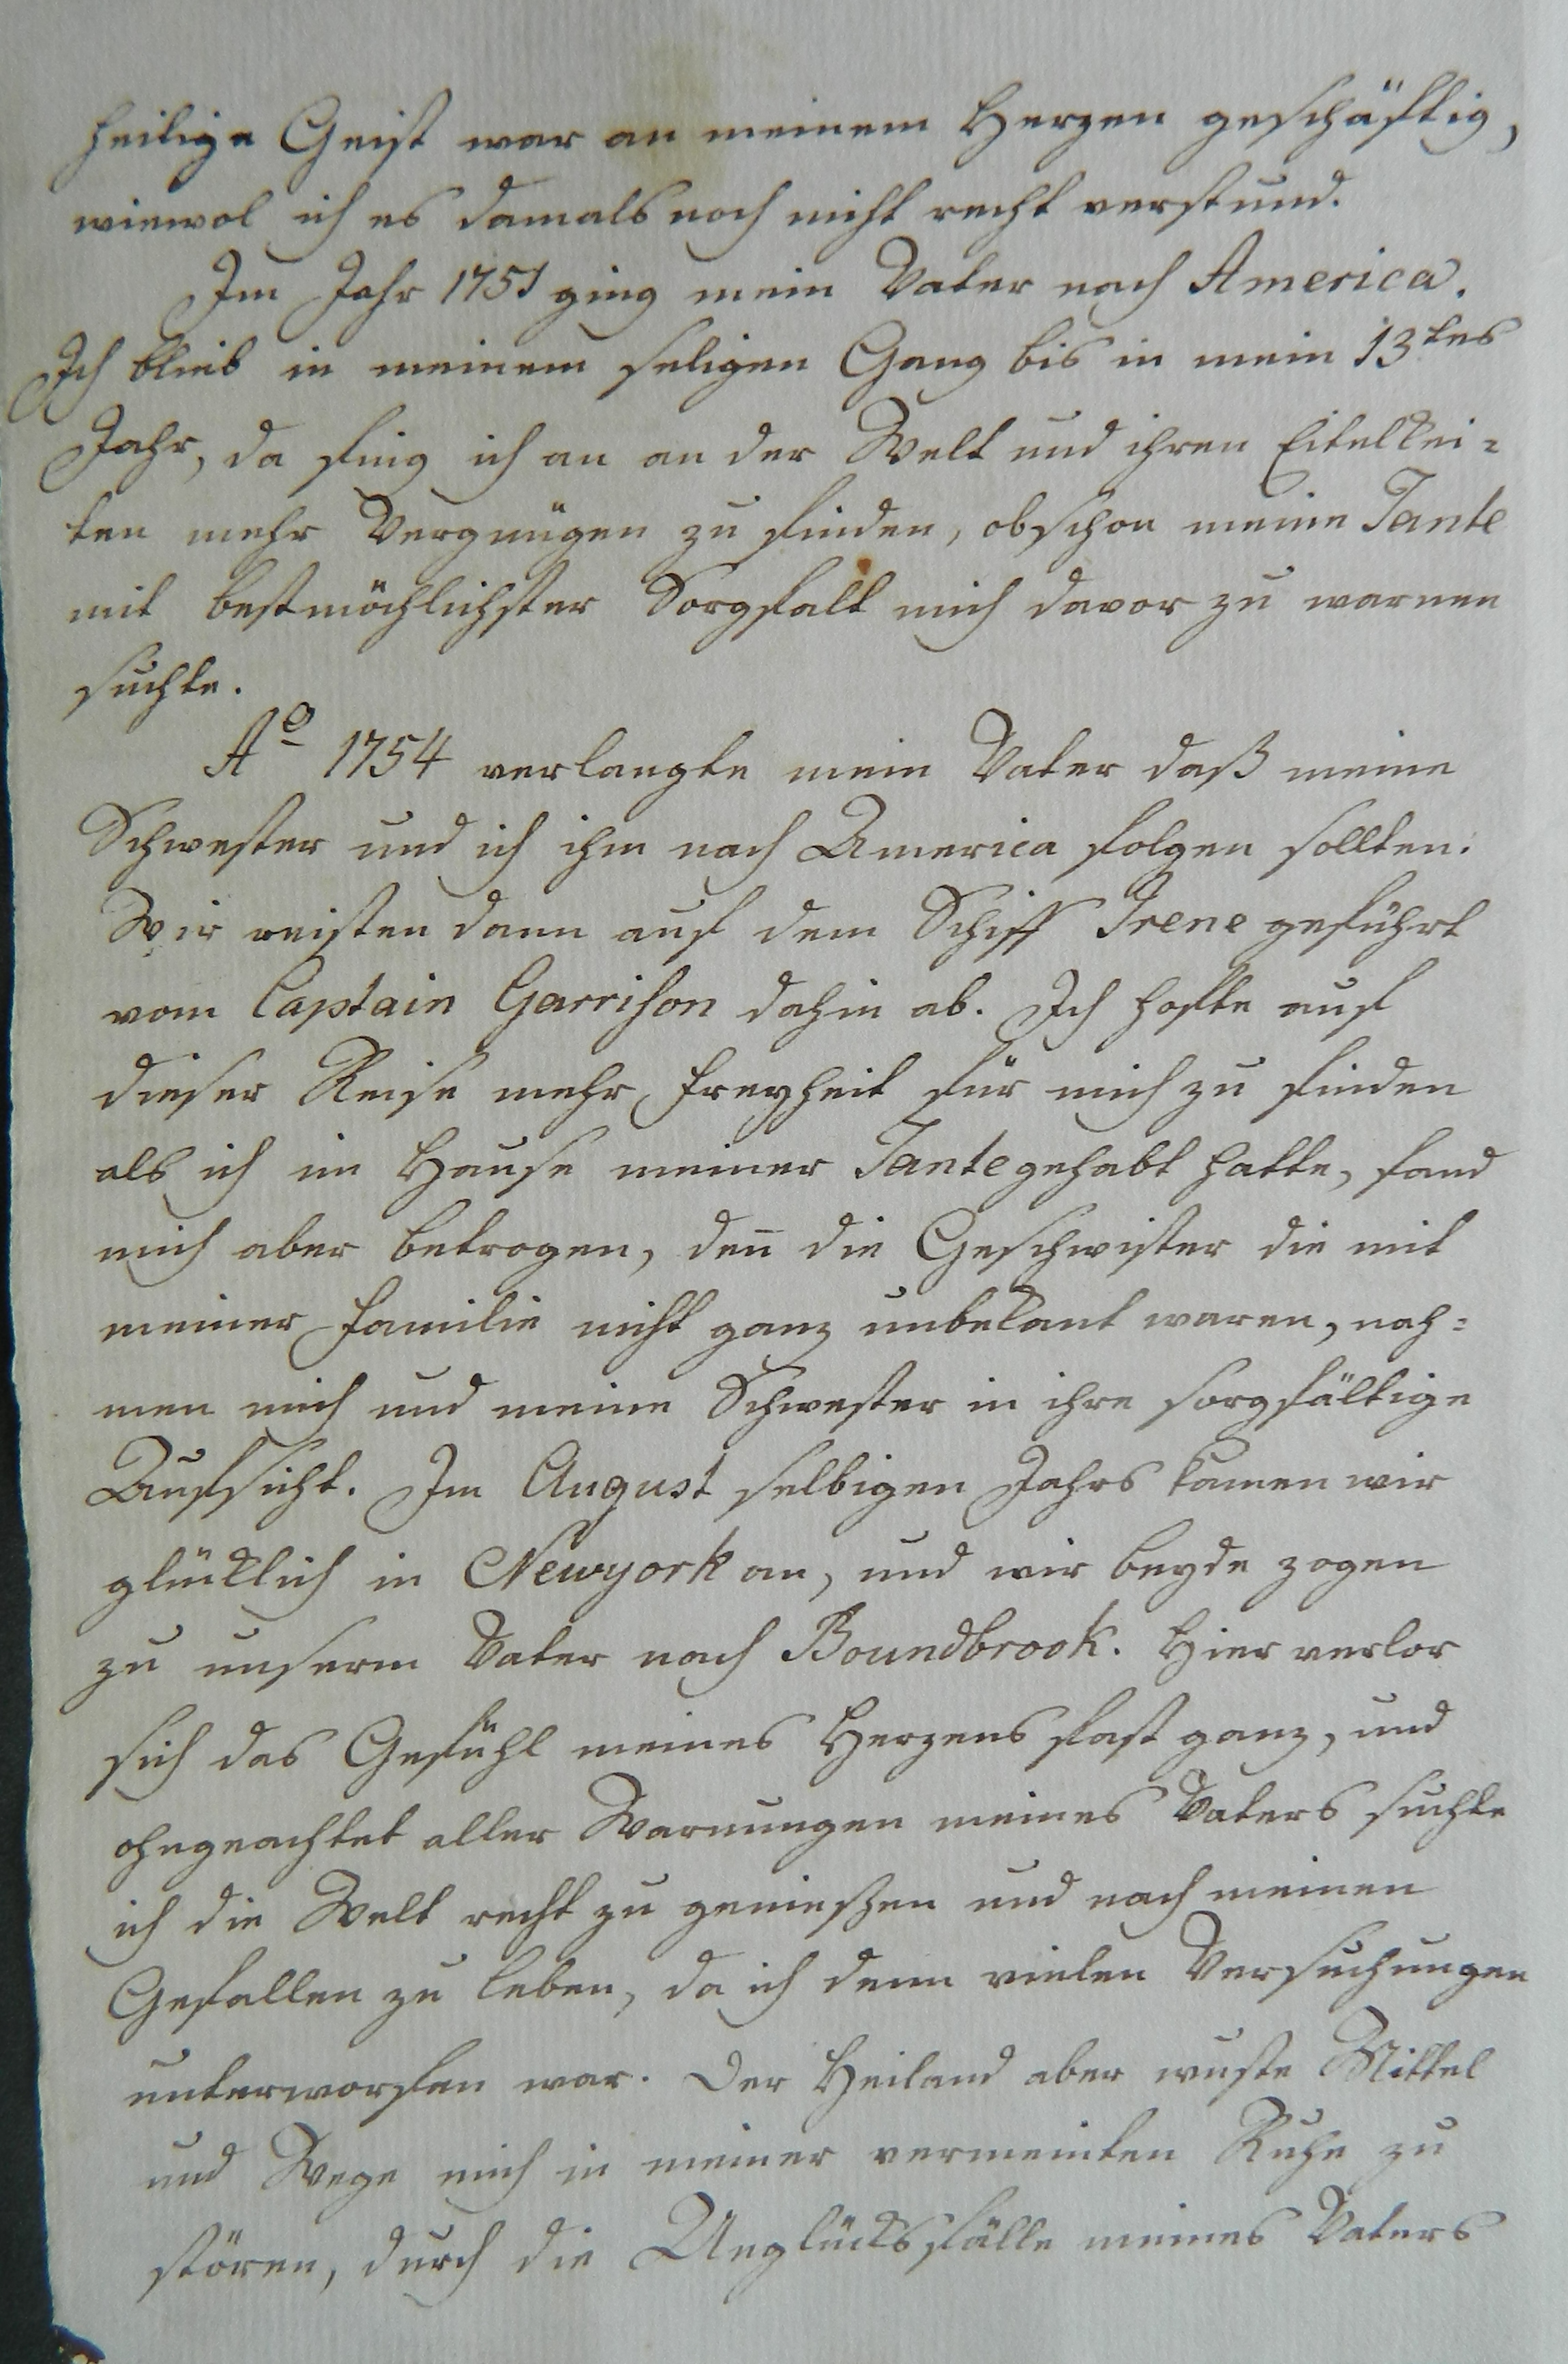 heilige Geist war an meinem Herzen geschäftig,
wiewol ich es damals noch nicht recht verstund.
Im Jahr 1751 ging mein Vater nach America.
Ich blieb in meinem seligen Gang bis in mein 13tes
Jahr, da fing ich an an der Welt und ihren Eitelkei=
ten mehr Vergnügen zu finden, obschon meine Tante
mit bestmöchlichster Sorgfalt mich davor zu warnen
suchte.
Ao 1754 verlangte mein Vater daß meine
Schwester und ich ihm nach America folgen sollten.
Wir reisten dann auf dem Schiff Irene geführt
vom Captain Garrison dahin ab. Ich hofte auf
dieser Reise mehr Freyheit für mich zu finden
als ich im Hause meiner Tante gehabt hatte, fand
mich aber betrogen, den̅ die Geschwister die mit
meiner Familie nicht ganz unbekant waren, nah=
men mich und meine Schwester in ihre sorgfältige
Aufsicht. Im August selbigen Jahrs kamen wir
glücklich in Newyork an, und wir beyde zogen
zu unserm Vater nach Boundbrook. Hier verlor
sich das Gefühl meines Herzens fast ganz, und
ohngeachtet aller Warnungen meines Vaters suchte
ich die Welt recht zu genießen und nach meinen
Gefallen zu leben, da ich denn vielen Versuchungen
unterworfen war. Der Heiland aber wuste Mittel
und Wege mich in meiner vermeinten Ruhe zu
stören, durch die Unglücksfälle meines Vaters